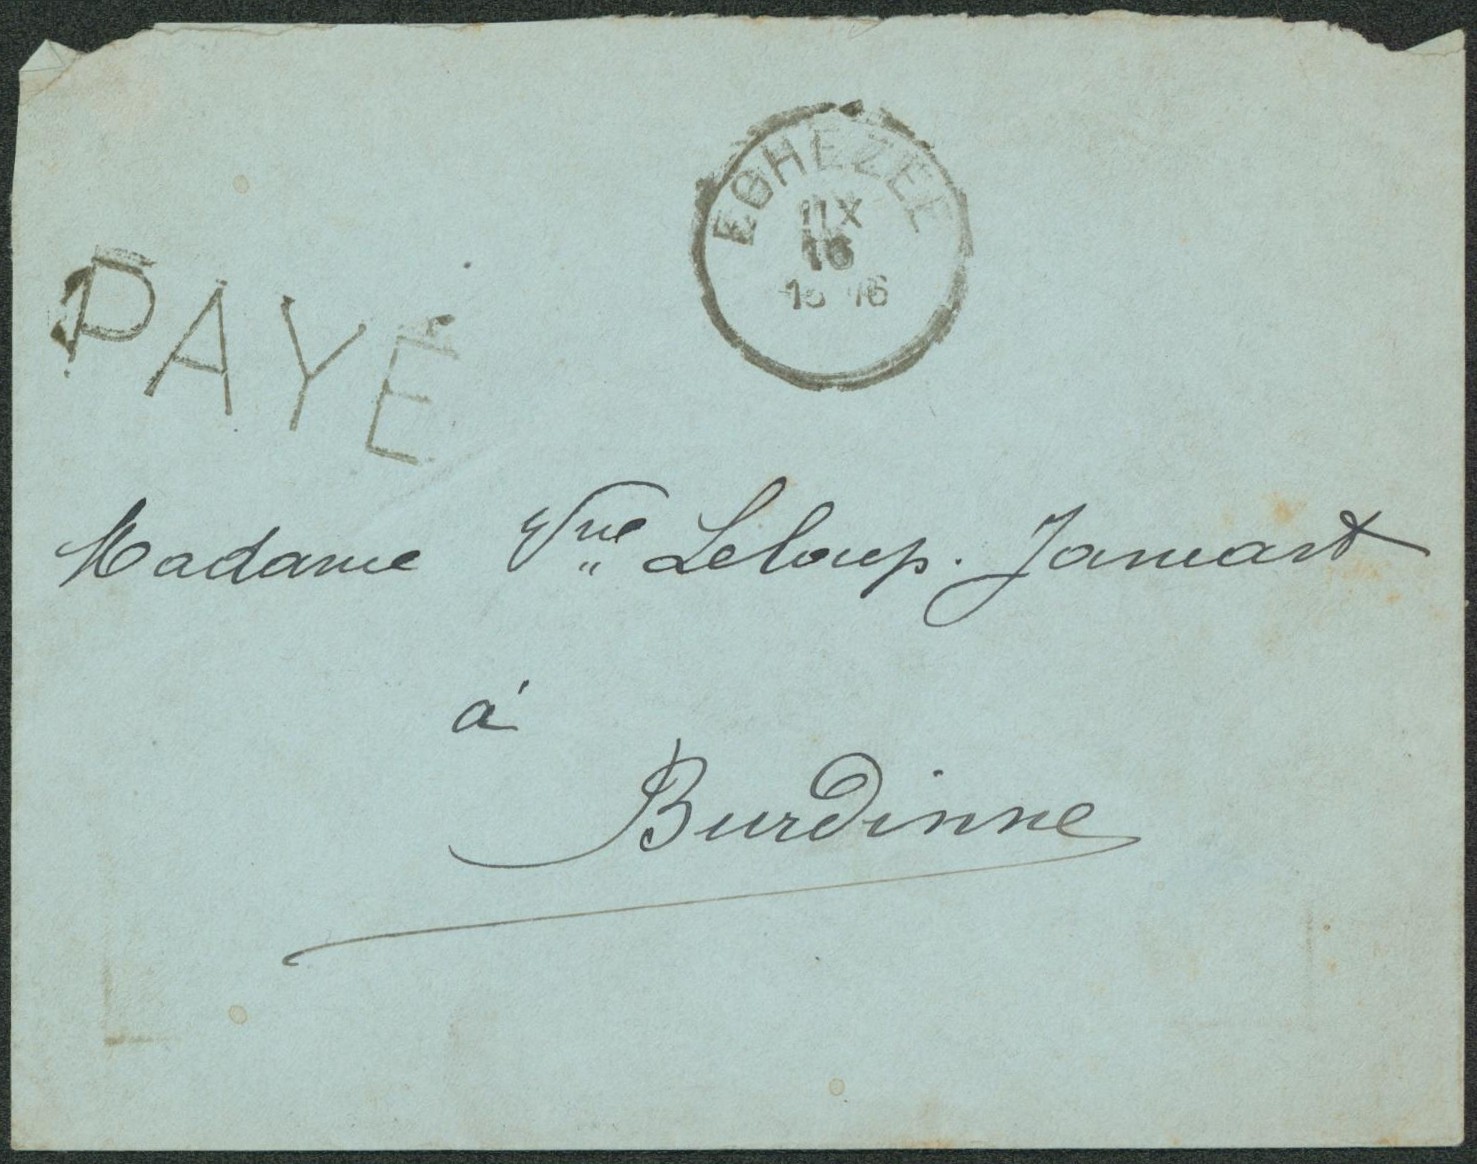 EGHEZEE
IX
16
PAYÉ
Madame Vve Leloup. Jamart
à
Burdinne